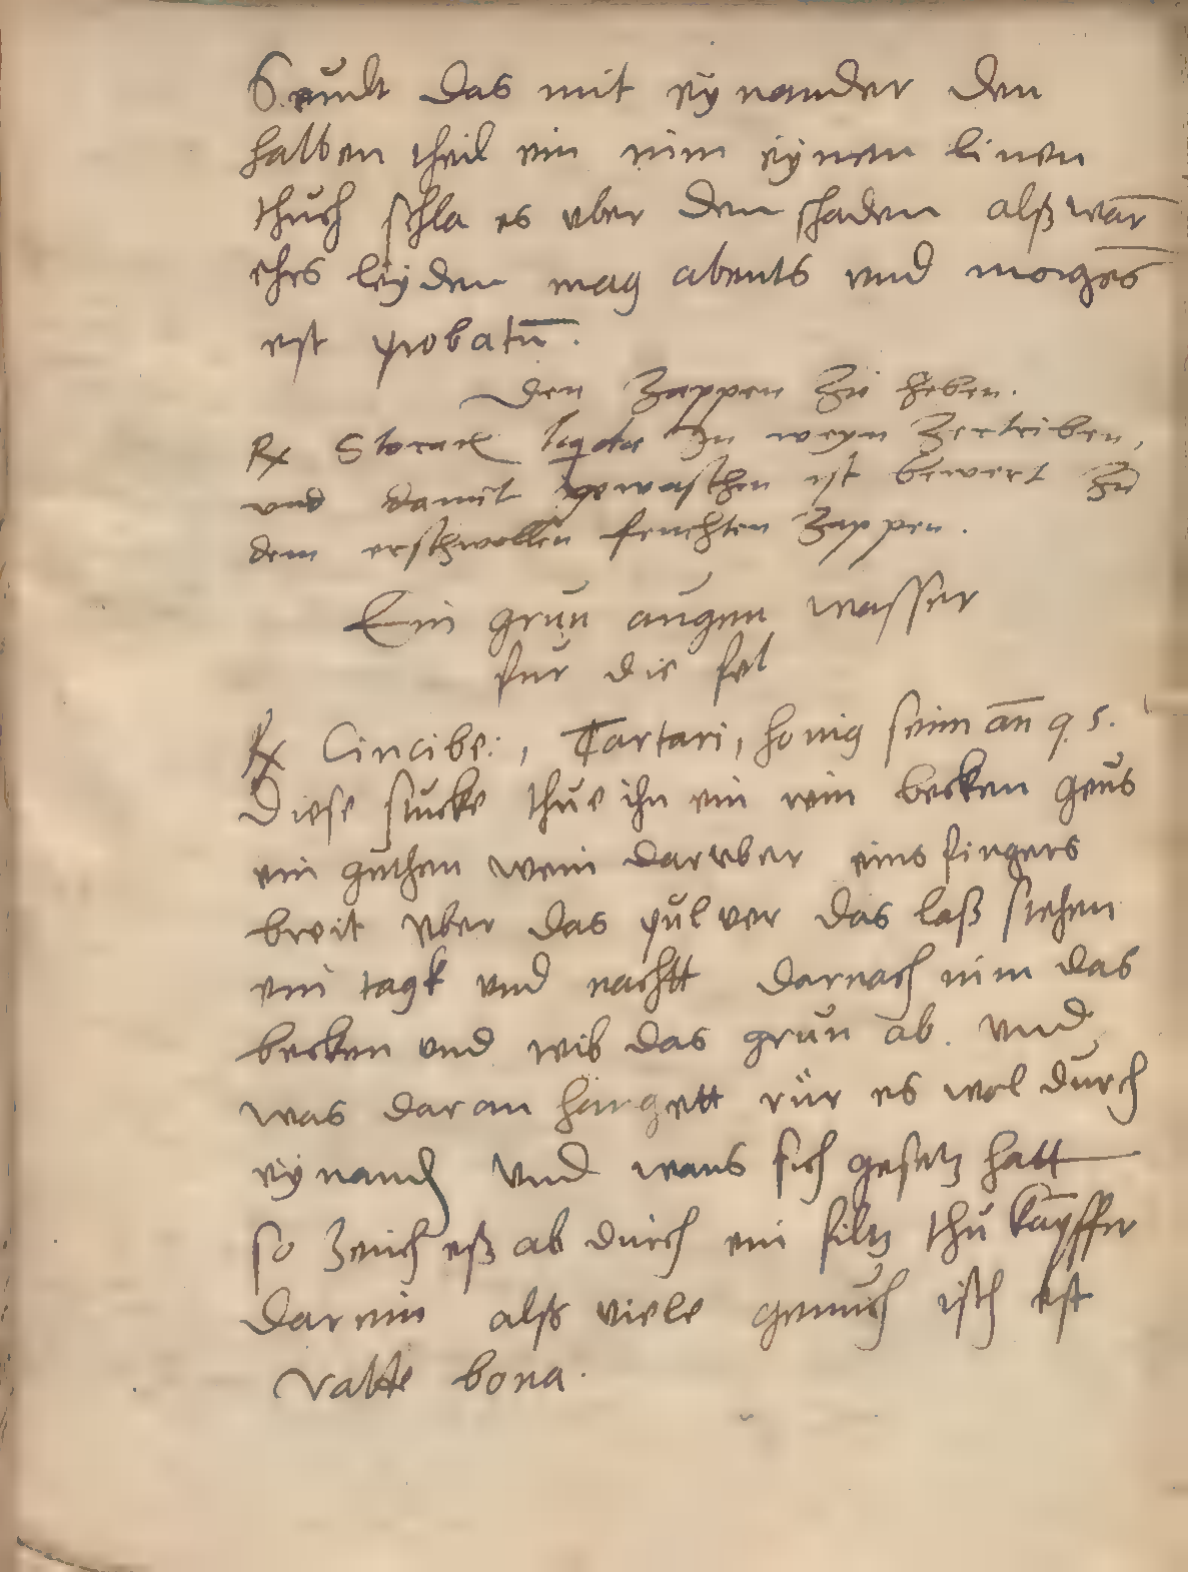 das mit eynander den
halben theil ein nim eynen linen
thuch schla es vber den schaden alß war
ehrs leyden mag abents vnd morges
est probatū.
Den Zappen zu heben.
Rx Storack liqdæ In weyn Zertriben,
vnd damit gewaschen ist bewert zu
dem erschwollen feuchten Zappen.
Ein grun augen wasser
fur die fel
Rx Cincibe:, Tartari, honig seim an̄ q s.
Diese stucke thue ihn ein rein becken geus
ein guthen wein daruber eins fingers
breit vber das puluer das laß stehen
ein tagk vnd nachtt darnach nim das
becken vnd wib das grun ab. vnd
was daran hangett rur es wol durch
eynand vnd wans sich gesetz hatt
so zeuch eß ab durch ein filtz thu kāpffer
darein alß viele genuch isth est
valde bona.